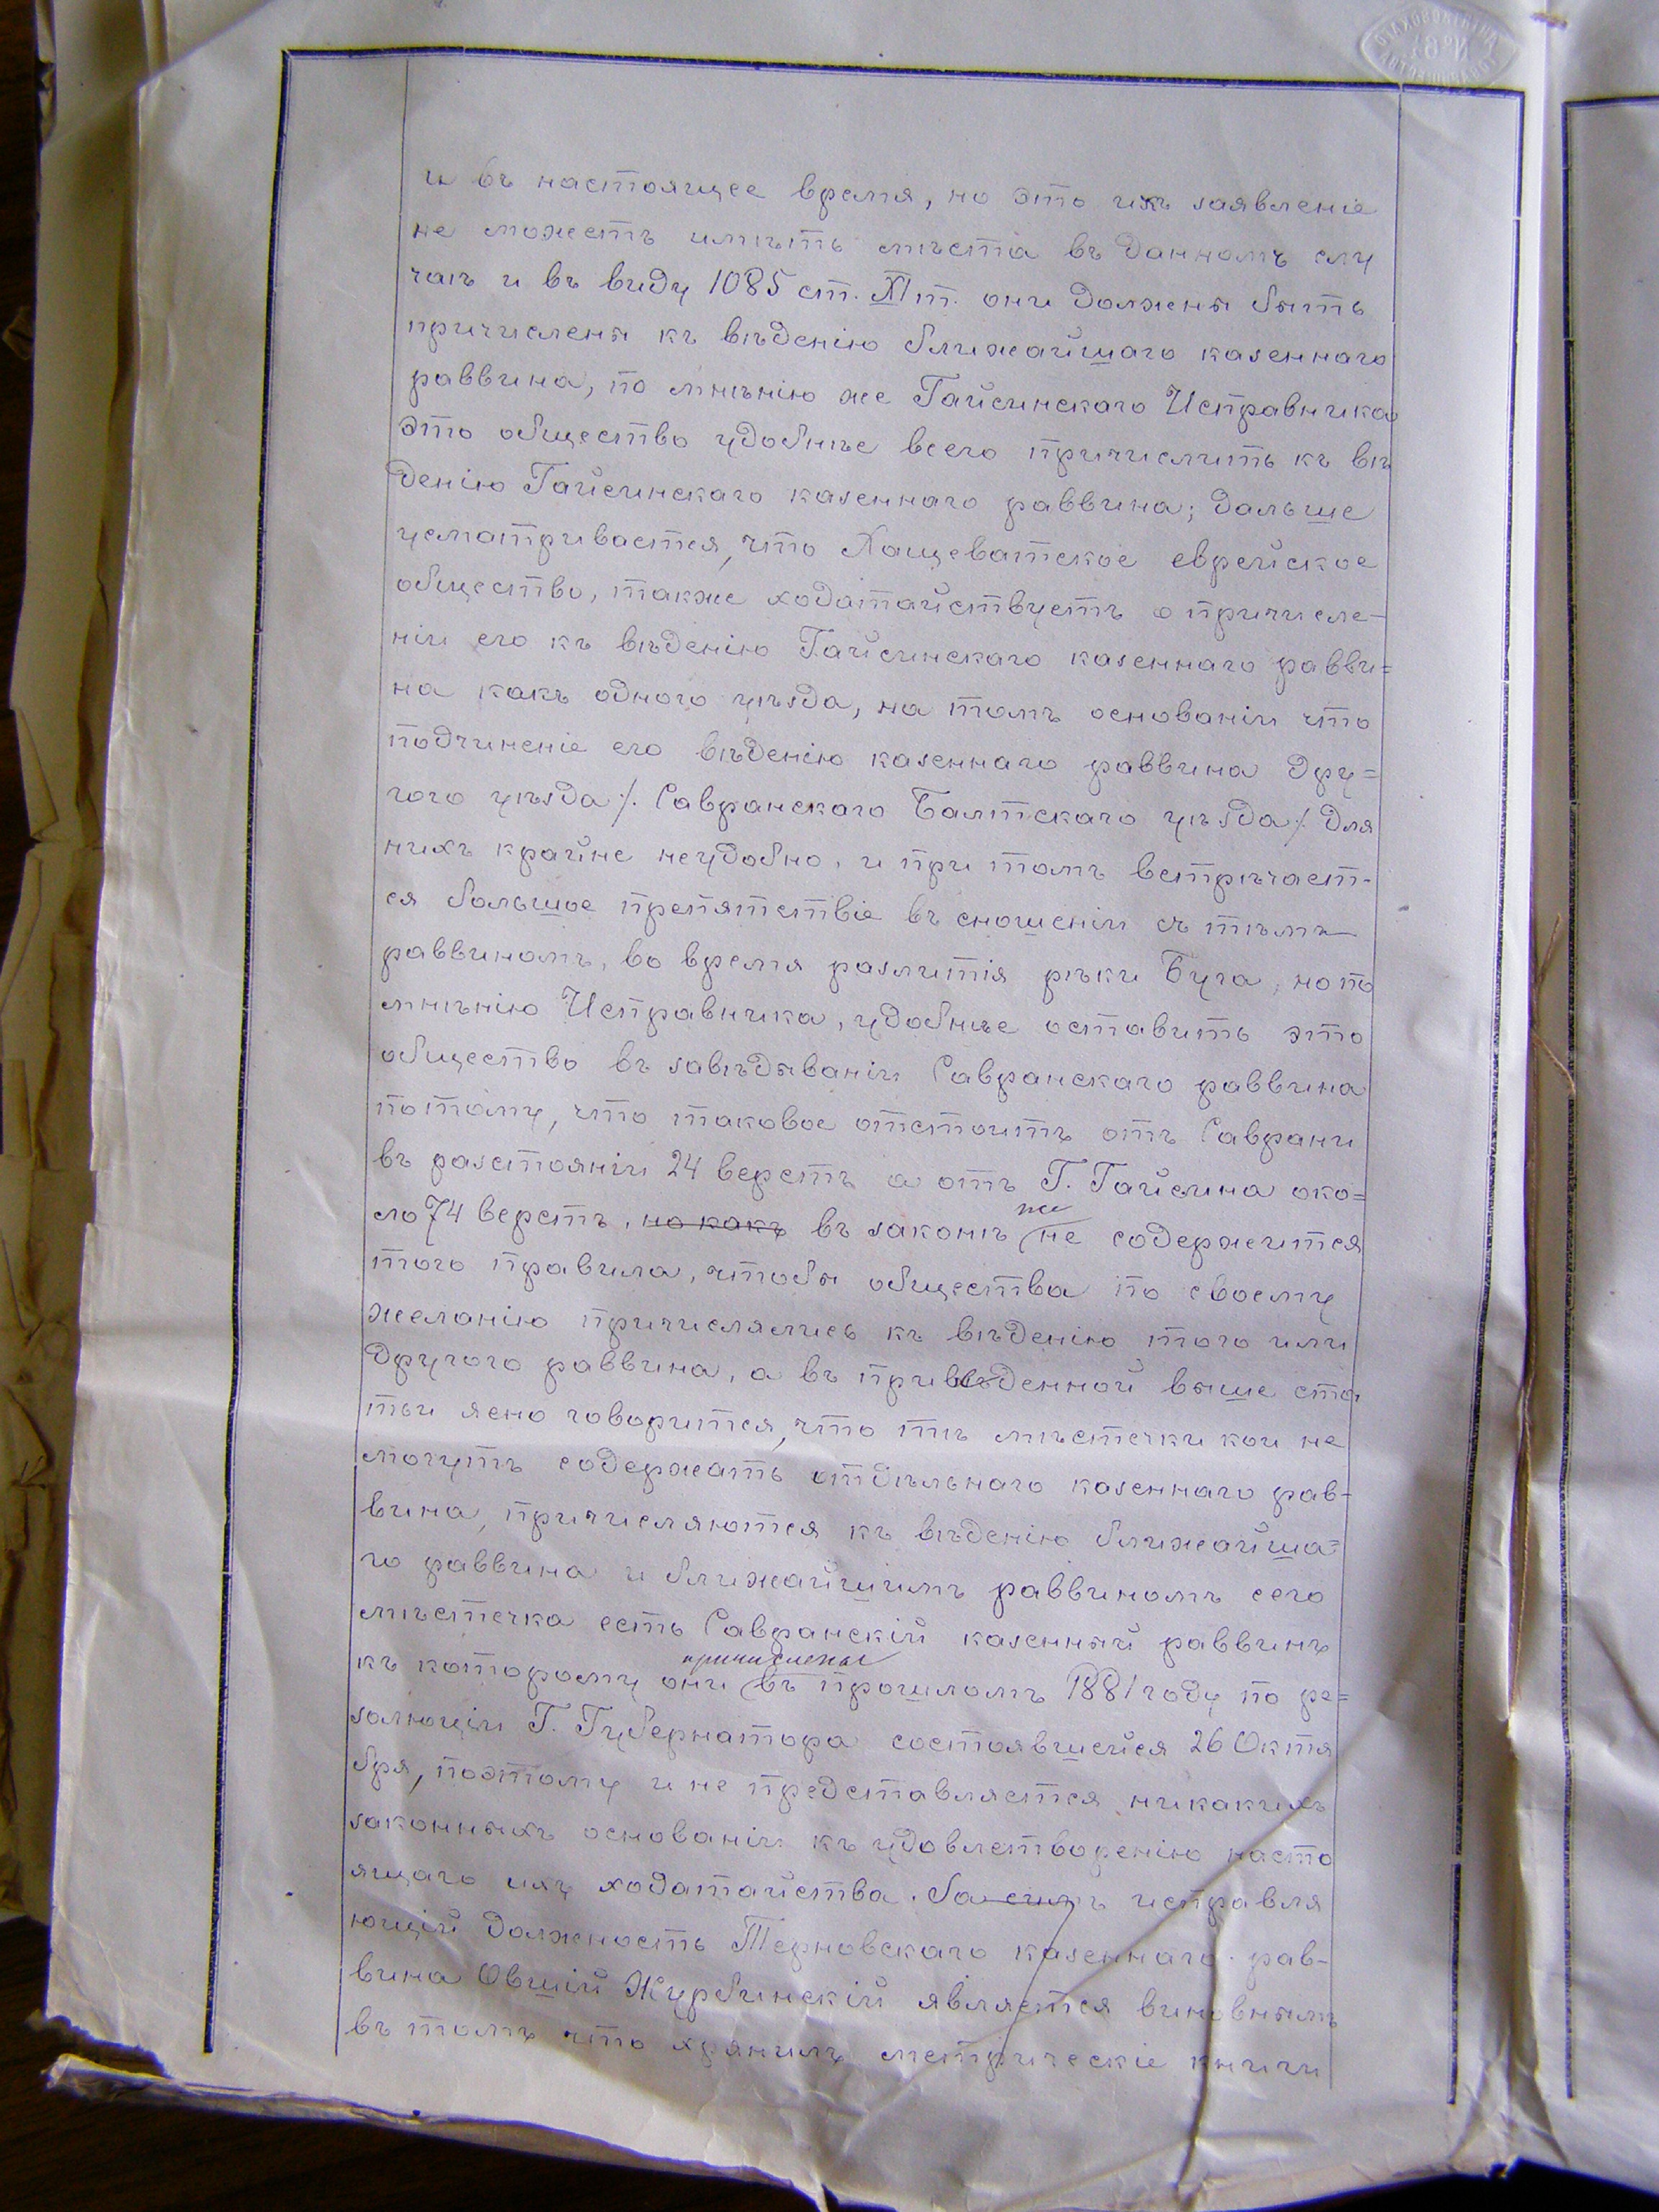 и въ настоящее время, но это ихъ заявленіе
не можетъ имѣть мѣста въ данномъ слу
чаѣ и въ виду 1085 ст. XI т. они должны быть
причислены къ вѣденію ближайшаго казеннаго
раввина, по мнѣнію же Гайсинскаго Исправника
это общество удобнѣе всего причислить къ вѣ
денію Гайсинскаго казеннаго раввина; дальше
усматривается, что Хащеватское еврейское
общество, также ходатайствуетъ о причисле-
ніи его къ вѣденію Гайсинскаго казеннаго равви=
на какъ одного уѣзда, на томъ основаніи что
подчиненіе его вѣденію казеннаго раввина дру=
гого уѣзда /. Савранскаго Балтскаго уѣзда /. для
нихъ крайне неудобно, и при томъ встрѣчает-
ся большое препятствіе въ сношеніи съ тѣмъ
раввиномъ, во время разлитія рѣки Буга, но по
мнѣнію Исправника, удобнѣе оставить это
общество въ завѣдываніи Савранскаго раввина
потому, что таковое отстоитъ отъ Саврани
въ разстояніи 24 верстъ а отъ Г. Гайсина око=
ло 74 верстъ, но какъ въ законѣ же не содержится
того правила, чтобы общества по своему
желанію причислялись къ вѣденію того или
другого раввина, а въ приведенной выше ста
тьи ясно говорится, что тѣ мѣстечки кои не
могутъ содержать отдѣльнаго казеннаго рав-
вина, причисляются къ вѣденію ближайша=
го раввина и ближайшимъ раввиномъ сего
мѣстечка есть Савранскій казенный раввинъ
къ которому они причислены въ прошломъ 1881 году по ре=
золюціи Г. Губернатора состоявшейся 26 Октя
бря, поэтому и не представляется никакихъ
законныхъ основаніи къ удовлетворенію насто
ящаго ихъ ходатайства. За симъ исправля
ющій должность Терновскаго казеннаго рав-
вина Овшій Журбинскій является виновнымъ
въ томъ что хранилъ метрическіе книги